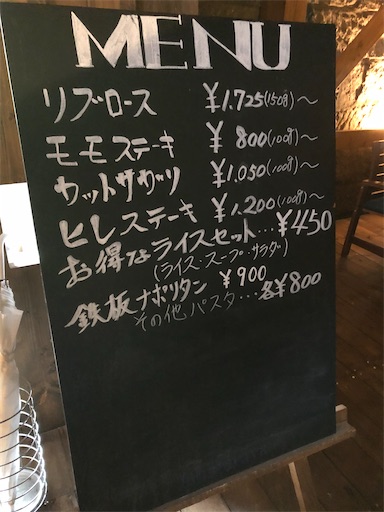 MENU
リブロース ¥1.725(150g)～
モモステーキ ¥800(100g)～
¥1.050(100g)～
ヒレステーキ ¥1.200(100g)～
お得なライスセット…¥450
(ライス・スープ・サラダー)
鉄板ナポリタン ¥900
その他パスタ…各¥800